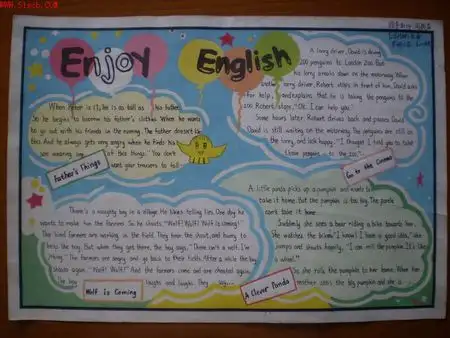 Enjoy English
When Peter is 13, he is as tall as his father.
So he begins to borrow his father's clothes. When he wants
to go out with his friends in the evening. The father doesn't like
this. And he always gets very angry when he finds his
son wearing any of his things. "You don't
want your trousers to fall
Father's Things
A lorry driver, David is driving
200 penguins to London Zoo. But
his lorry breaks down on the motorway. When
another lorry driver, Robert stops in front of him, David asks
for help, and explains that he is taking the penguins to the
zoo. Robert says, "Ok. I can help you."
Some hours later Robert drives back and passes David
David is still waiting on the motorway. The penguins are still in
the lorry, and look happy. "I thought I told you to take
these penguins to the zoo"
Go to the Cinema
There's a naughty boy in a village. He likes telling lies. One day he
wants to make fun the farmers. So he shouts, "Wolf! Wolf! Wolf is coming!"
The kind farmers are working in the field. They hear the shout, and hurry to
help the boy. But when they get there, the boy says, "There isn't a wolf. I'm
The farmers are angry and go back to their fields. After a while the boy
shouts again, "Wolf! Wolf!" And the farmers come and are cheated again.
The boy laughs and laughs. They say
Wolf is Coming
A little panda picks up a pumpkin and wants to
take it home. But the pumpkin is too big. The panda
can't take it home.
Suddenly she sees a bear riding a bike towards her.
She watches the bike. "I know! I have a good idea." she
jumps and shouts happily, "I can roll the pumpkin. It's like
a wheel."
So she rolls the pumpkin to her home. When her
mother sees the big pumpkin and she is
A Clever Panda